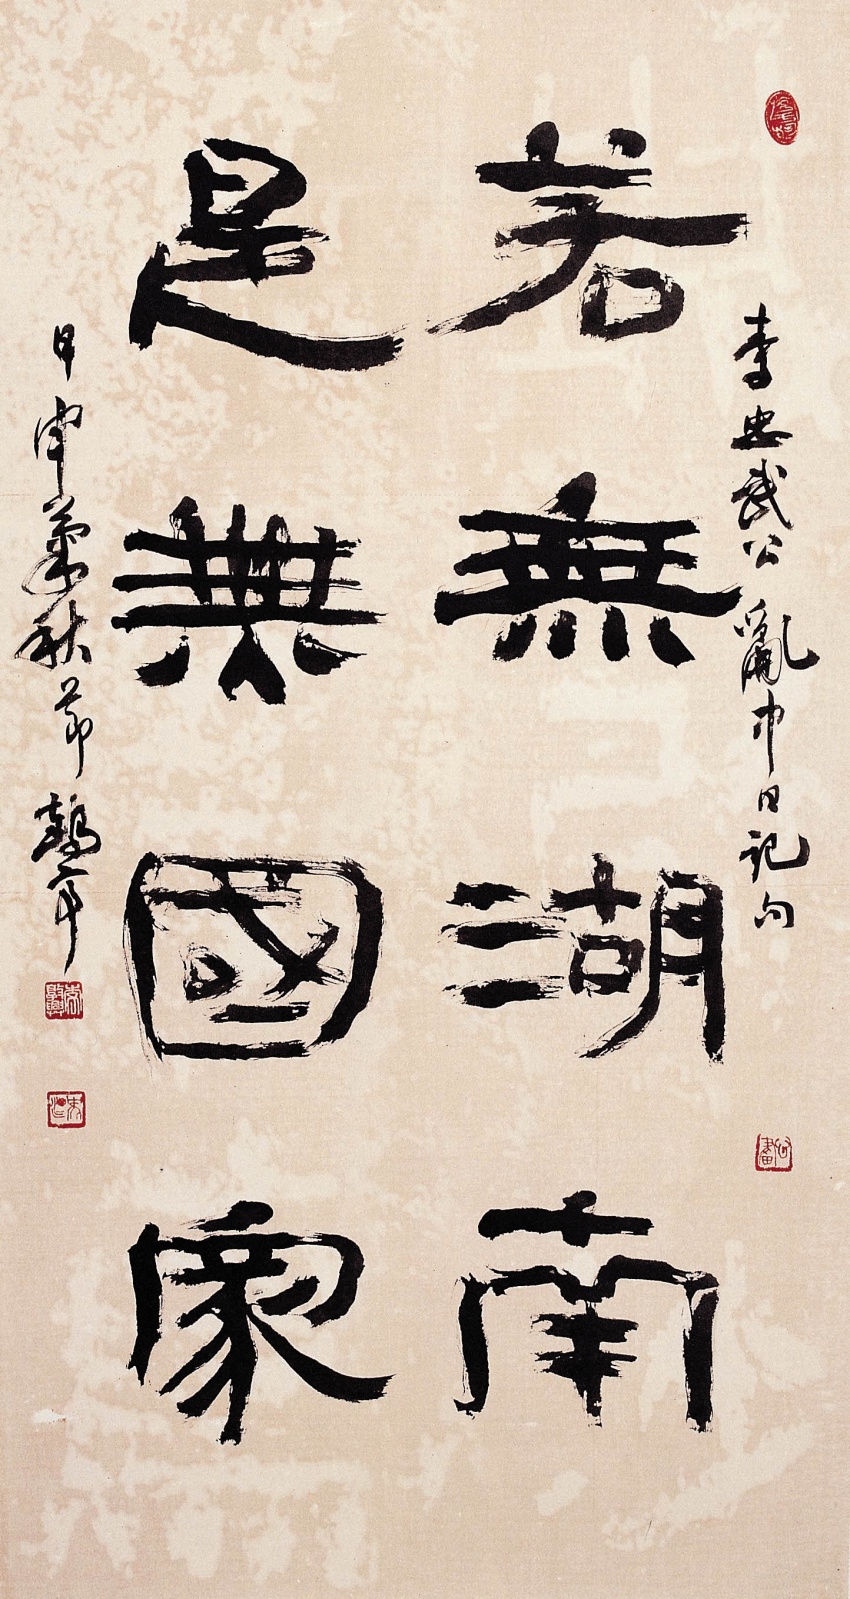 李忠武公亂中日記句
若無湖南
是無國家
甲申秋節 鶴亭